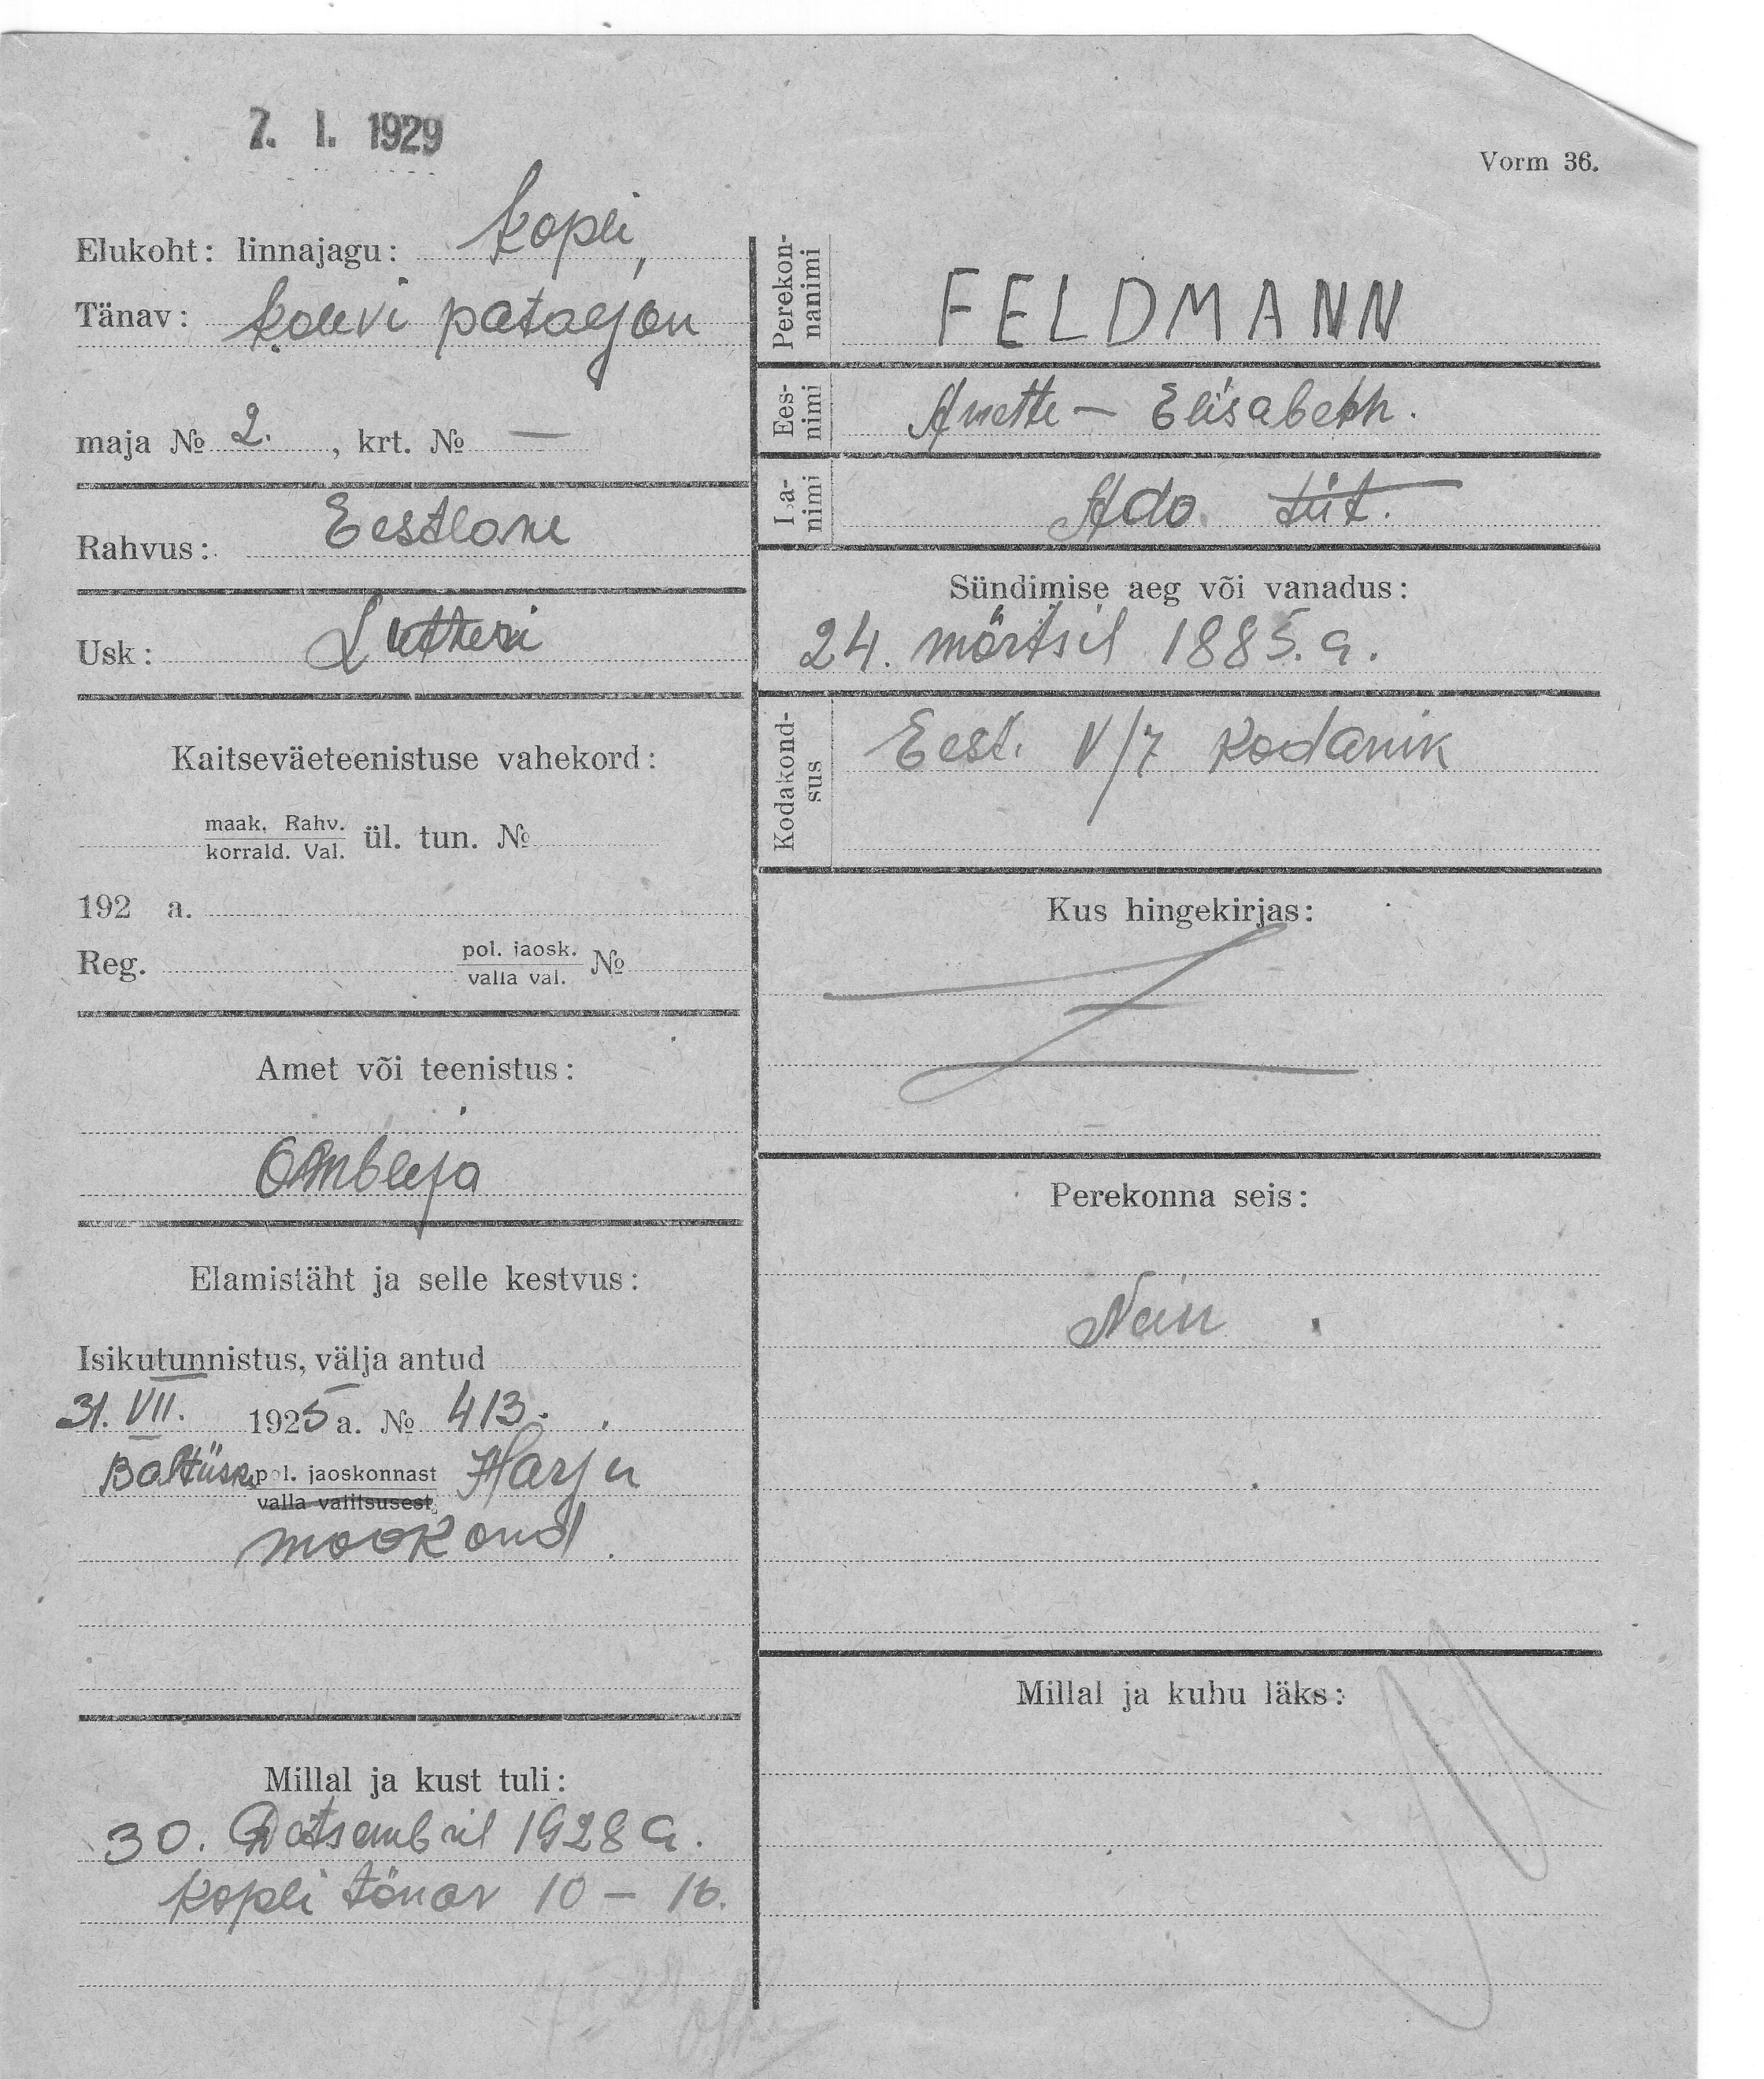 7. I. 1929
Vorm 36.
Elukoht: linnajagu: Kopli,
Tänav: Kalevi pataljon
maja № 2. , krt. № —
Rahvus: Eestlane
Usk: Lutheri
Kaitseväeteenistuse vahekord:
maak. Rahv.
korrald. Val. ül. tun. №
192 a.
Reg. pol. jaosk.
valla val. №
Amet või teenistus:
Ömbleja
Elamistäht ja selle kestvus:
Isikutunnistus, välja antud
31. VII. 1925 a. № 413.
Baltiiski pol. jaoskonnast Harju
valla valitsusest
maakond.
Millal ja kust tuli:
30. Detsembril 1928 a.
Kopli tänav 10 – 16.
Perekon-
nanimi
FELDMANN
Ees-
nimi
Anette – Elisabeth.
Isa-
nimi
Ado tüt.
Sündimise aeg või vanadus:
24. märtsil 1885. a.
Kodakond-
sus
Eest. V/7 Kodanik
Kus hingekirjas:
Perekonna seis:
Millal ja kuhu läks: